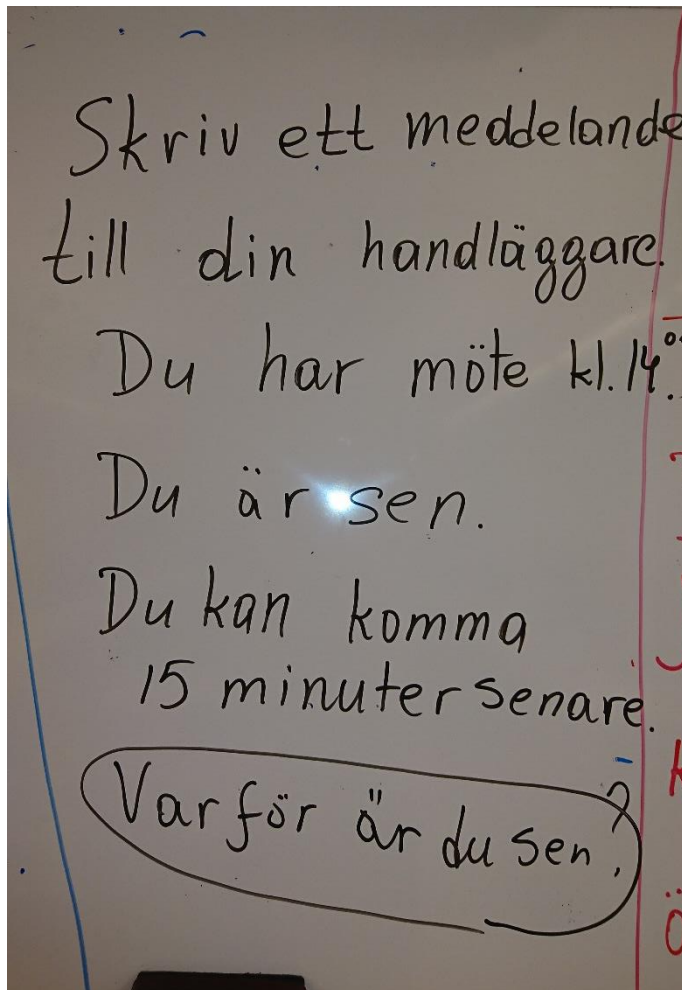 Skriv ett meddelande
till din handläggare.
Du har möte kl. 14
Du är sen.
Du kan komma
15 minuter senare.
Varför är du sen?